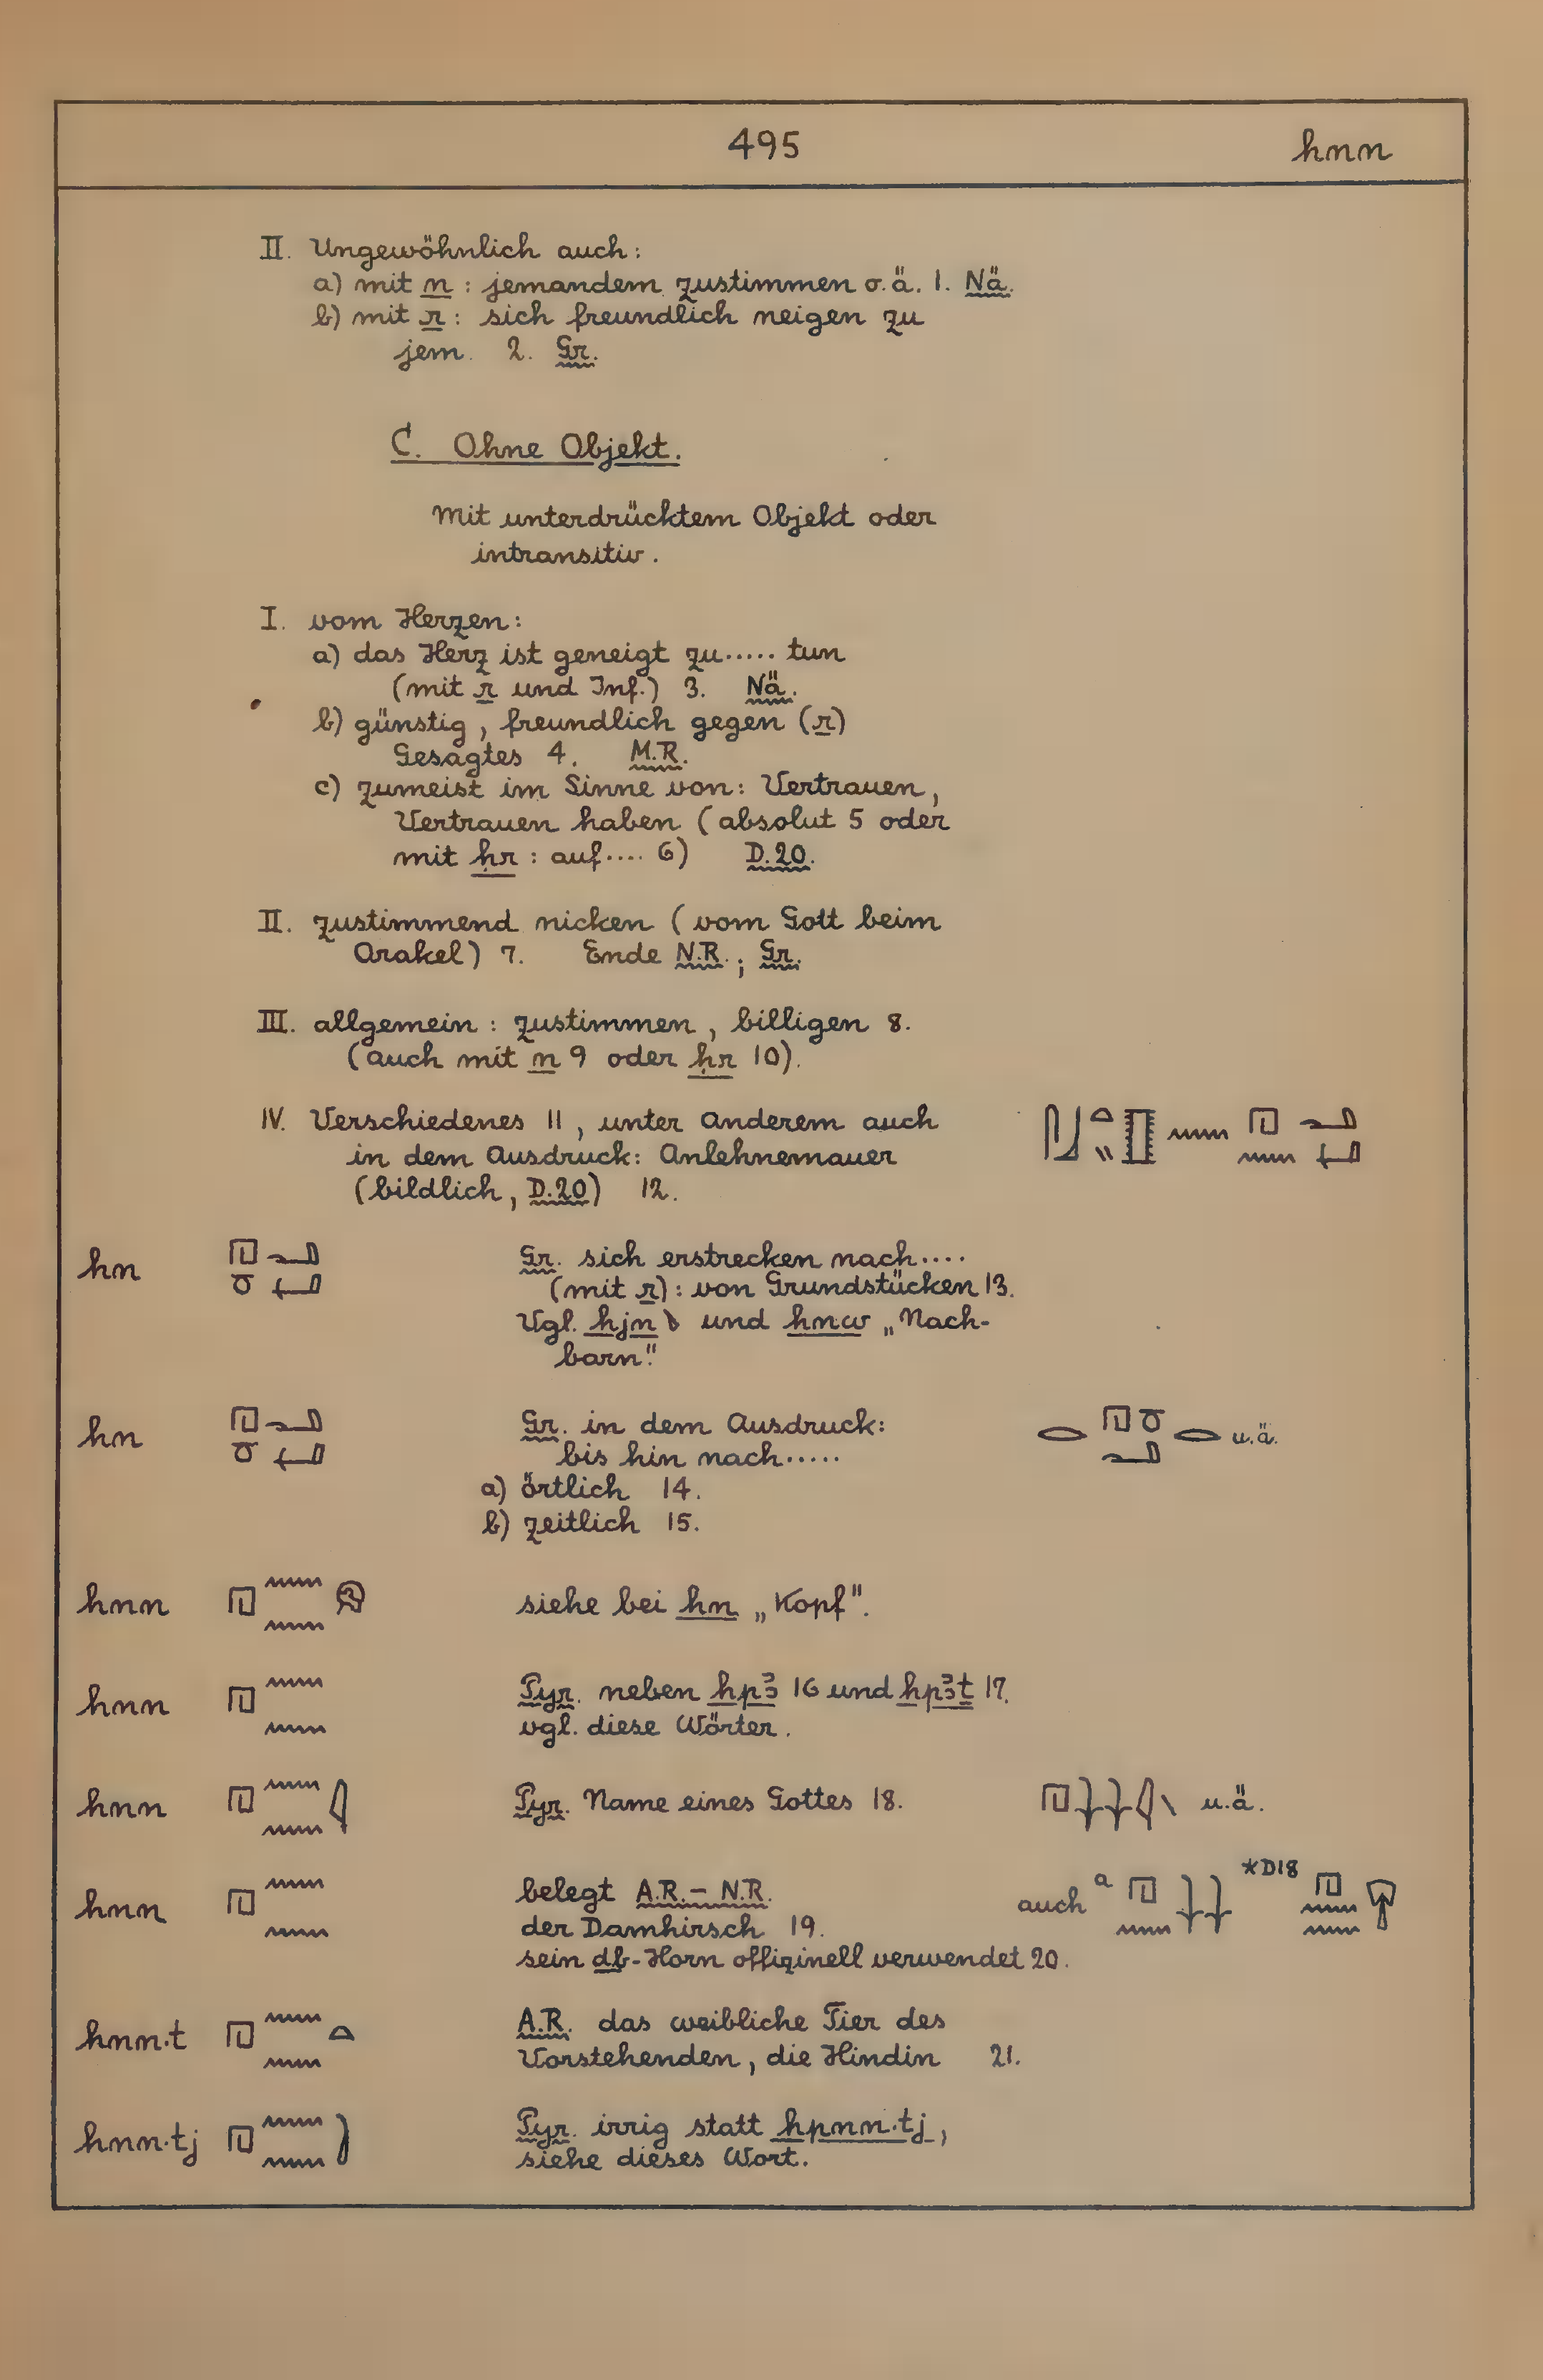 495
hnn
II. Ungewöhnlich auch:
a) mit n : jemandem zustimmen o.ä. 1. Nä.
b) mit r : sich freundlich neigen zu
jem. 2. Gr.
C. Ohne Objekt.
Mit unterdrücktem Objekt oder
intransitiv.
I. vom Herzen:
a) das Herz ist geneigt zu..... tun
(mit r und Inf.) 3. Nä.
b) günstig, freundlich gegen (r)
Gesagtes 4. M.R.
c) zumeist im Sinne von: Vertrauen,
Vertrauen haben (absolut 5 oder
mit ḥr : auf.... 6) D.20.
II. zustimmend nicken (vom Gott beim
Orakel) 7. Ende N.R.; Gr.
III. allgemein : zustimmen, billigen 8.
(auch mit n 9 oder ḥr 10).
IV. Verschiedenes 11, unter anderem auch
in dem Ausdruck: Anlehnemauer
(bildlich, D.20) 12.
hn Gr. sich erstrecken nach....
(mit r) : von Grundstücken 13.
Vgl. hjn und hnw „Nach-
barn".
hn Gr. in dem Ausdruck: u.ä.
bis hin nach.....
a) örtlich 14.
b) zeitlich 15.
hnn siehe bei hn „Kopf".
hnn Pyr. neben hpꜣ 16 und hpꜣt 17.
vgl. diese Wörter.
hnn Pyr. Name eines Gottes 18. u.ä.
hnn belegt A.R.– N.R. auch a *D18
der Damhirsch 19.
sein db-Horn offizinell verwendet 20.
hnn.t A.R. das weibliche Tier des
Vorstehenden, die Hindin 21.
hnn.tj Pyr. irrig statt hpnn.tj,
siehe dieses Wort.